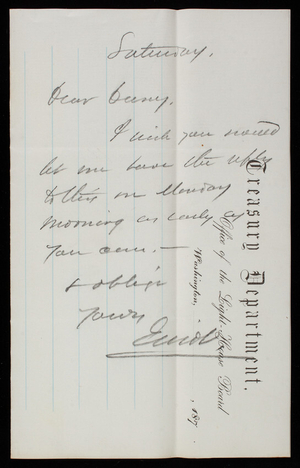 Saturday.
Dear Casey,
I wish you would
let me have the reply
to this on Monday
morning as early as
you can. —
& oblige
Yours
Treasury Department.
Office of the Light-House Board
Washington,
, 187